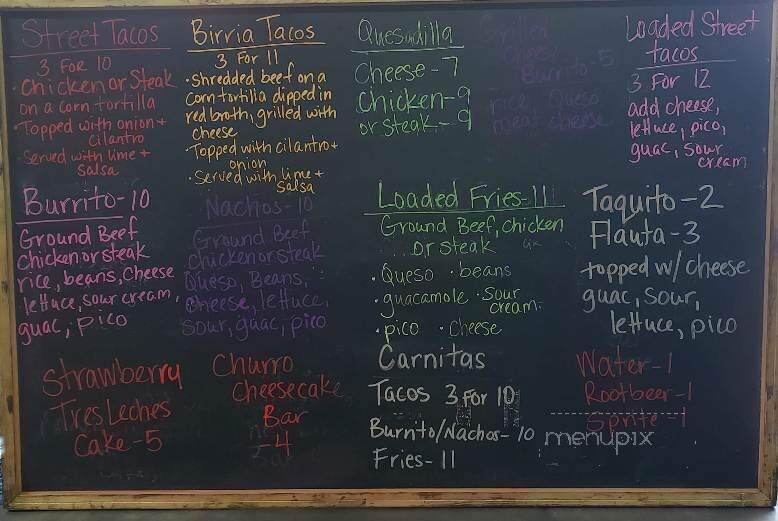 Street Tacos
3 For 10
• Chicken or Steak
on a corn tortilla
• Topped with onion +
Cilantro
• Served with lime +
salsa
Birria Tacos
3 For 11
• shredded beef on a
Corn tortilla dipped in
red broth, grilled with
cheese
• Topped with cilantro +
onion
• Served with lime +
salsa
Quesadilla
Cheese - 7
Chicken - 9
or steak - 9
Grilled
Cheese
Burrito - 5
rice, Queso
meat cheese
Loaded Street
tacos
3 For 12
add cheese,
lettuce, pico,
guac, sour
cream
Burrito - 10
Ground Beef
chicken or steak
rice, beans, cheese
lettuce, sour cream,
guac, pico
Nachos - 10
Ground Beef
chicken or steak
Queso, Beans,
cheese, lettuce,
sour, guac, pico
Loaded Fries - 11
Ground Beef, chicken
or steak
• Queso • beans
• guacamole • Sour
cream
• pico • Cheese
Taquito - 2
Flauta - 3
topped w/ cheese
guac, sour,
lettuce, pico
Strawberry
Tres Leches
Cake - 5
Churro
Cheesecake
Bar
- 4
Carnitas
Tacos 3 For 10
Burrito/Nachos - 10
Fries - 11
Water - 1
Rootbeer - 1
Sprite - 1
menupix